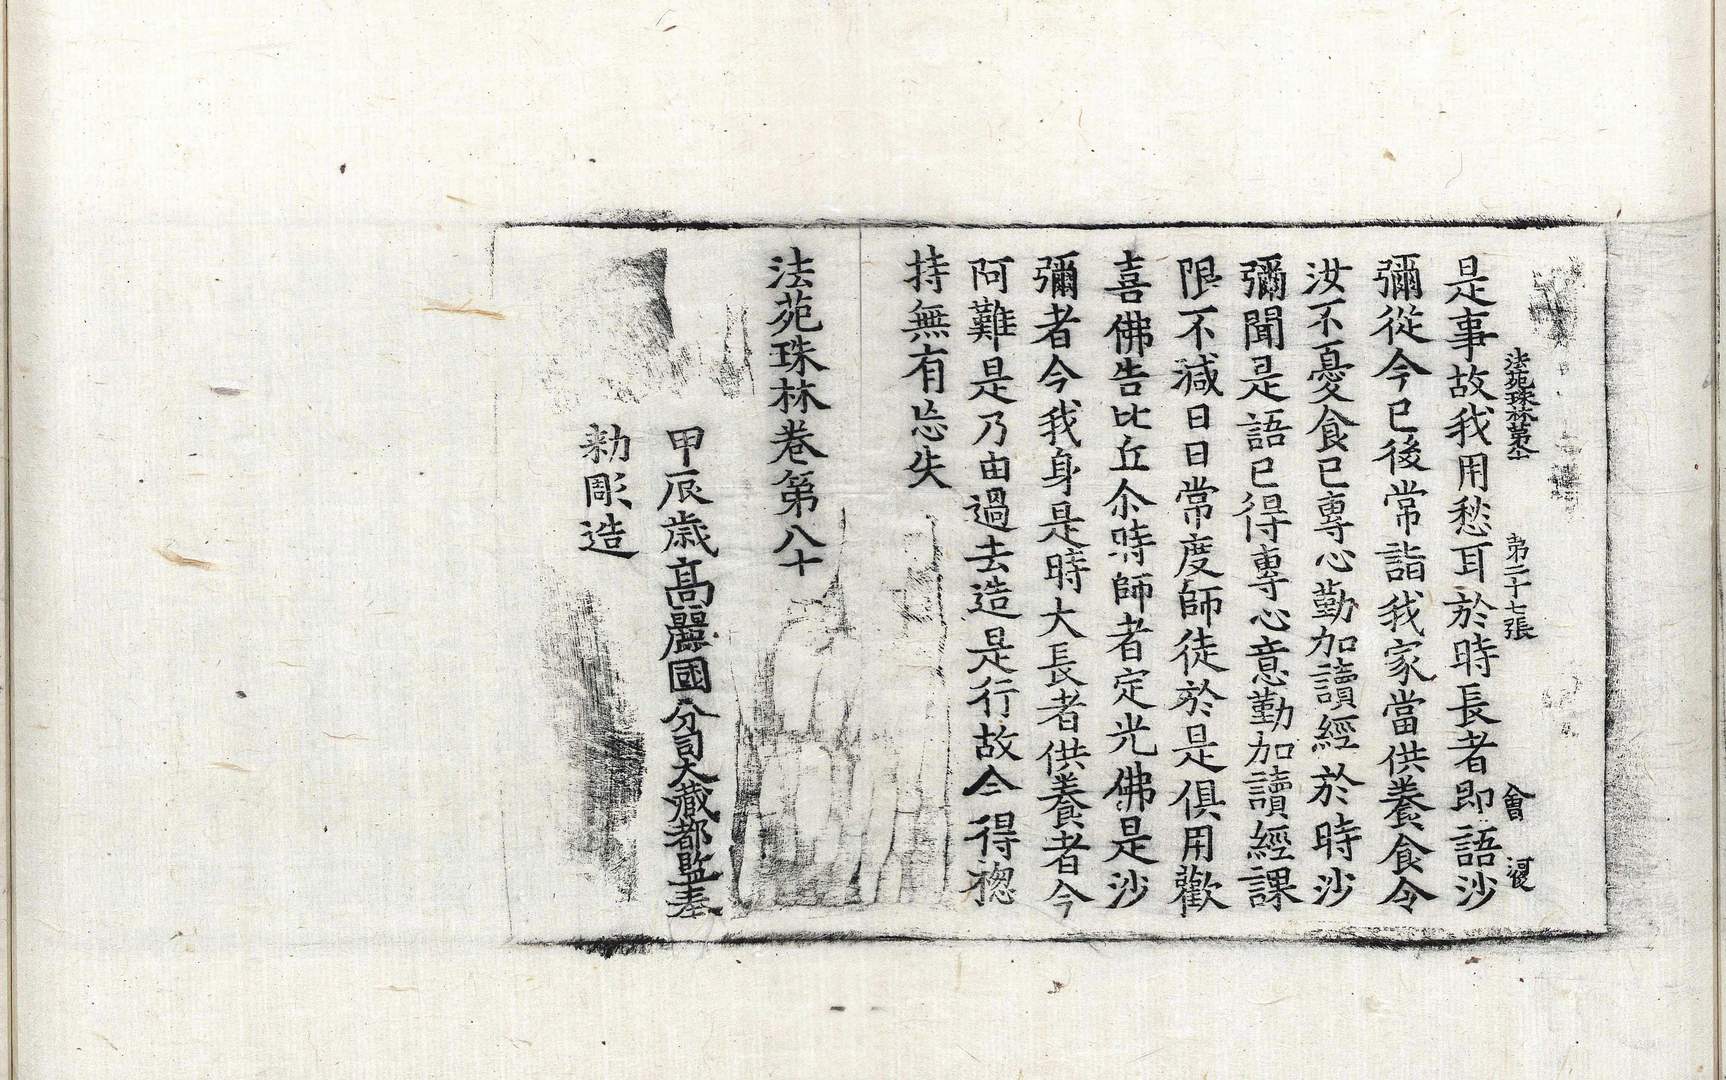 法苑珠林第八十 第二十七張 會 河復
是事故我用愁耳於時長者即語沙
彌從今已後常詣我家當供養食令
汝不憂食已專心勤加讀經於時沙
彌聞是語已得專心意勤加讀經課
限不減日日常度師徒於是俱用歡
喜佛告比丘尒時師者定光佛是沙
彌者今我身是時大長者供養者今
阿難是乃由過去造是行故今得揔
持無有忘失
法苑珠林卷第八十
甲辰歲高麗國分司大藏都監奉
勑彫造